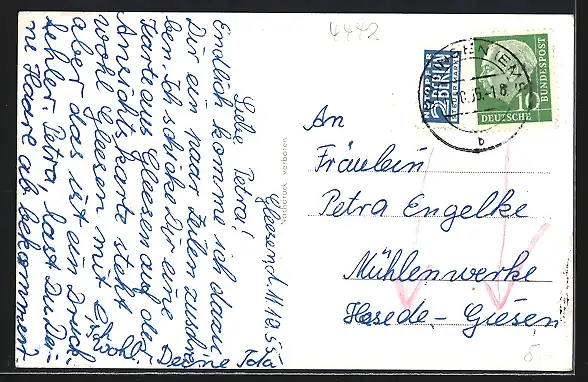 Gleesen, d. 11. 10. 55
Liebe Petra!
Endlich komme ich dazu
Dir ein paar Zeilen zu schrei-
ben. Ich schicke Dir eine
Karte aus Gleesen auf der
Ansichtskarte steht
wohl Gleesen mit
aber das ist ein Druck-
fehler. Petra, hast Du Dei-
ne Haare ab bekommen?
Deine
Nachdruck verboten
4442
NOTOPFER
2 BERLIN
STEUERMARKE
10
DEUTSCHE
BUNDESPOST
b
An
Fräulein
Petra Engelke
Mühlenwerke
Hasede-Giesen